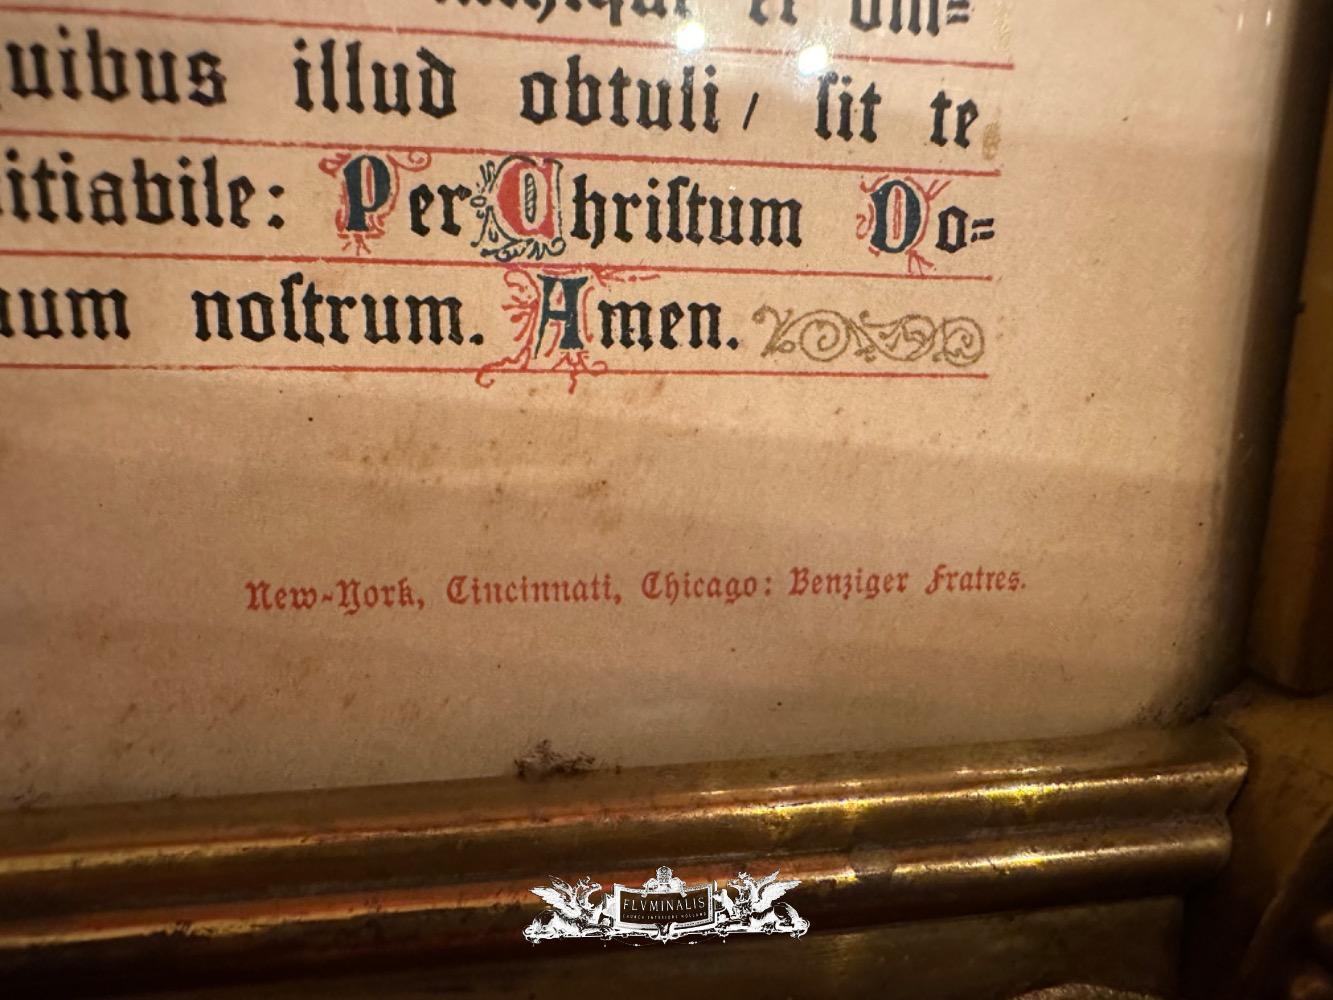 mihique et om=
quibus illud obtuli / ſit te
itiabile: Per Chriſtum Do=
num noſtrum. Amen.
New-York, Cincinnati, Chicago: Benziger Fratres.
FLVMINALIS
CHURCH INTERIORS HOLLAND